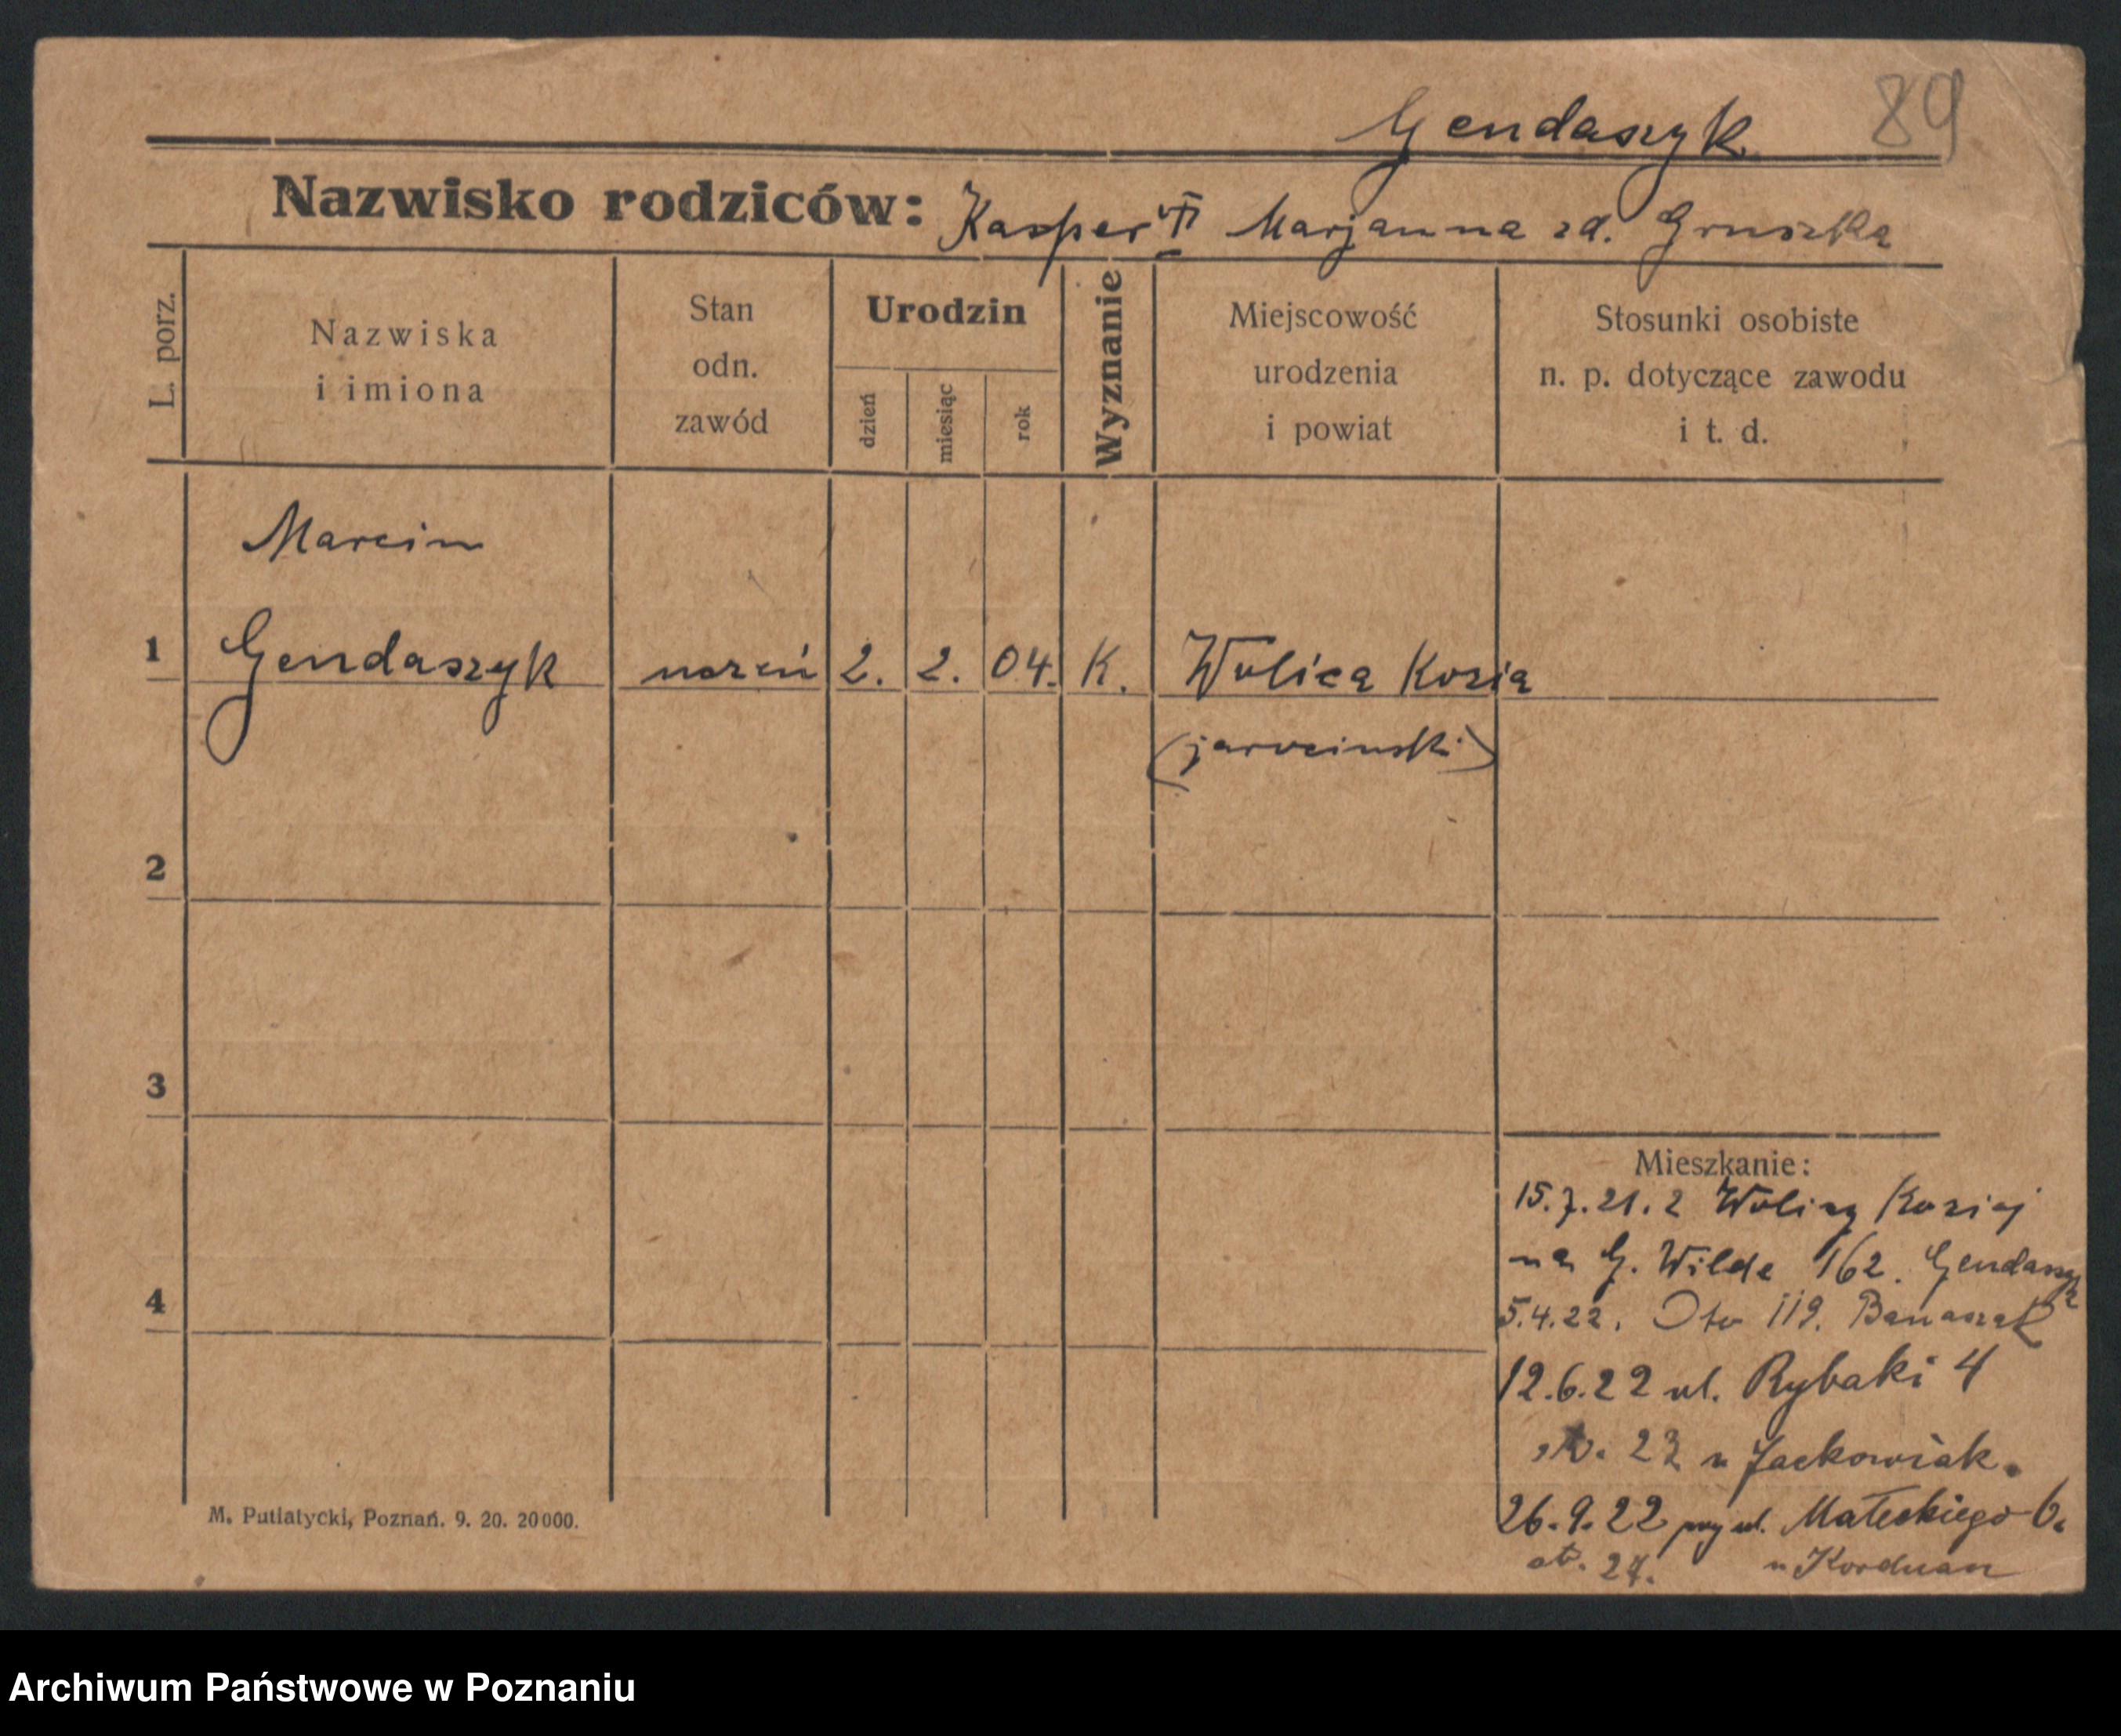 89
Gendaszyk
Nazwisko rodziców: Kasper Marjanna zd. Gruszka
L. porz.
Nazwiska
i imiona
Stan
odn.
zawód
Urodzin
dzień
miesiąc
rok
Wyznanie
Miejscowość
urodzenia
i powiat
Stosunki osobiste
n. p. dotyczące zawodu
i t. d.
Marcin
1 Gendaszyk uczeń 2. 2. 04. K. Wolica Kozia
(jarocinsk.)
2
3
4
Mieszkanie:
15.7.21. z Wolicy Koziej
na G. Wilde 162. Gendaszyk
5.4.22. 119. Banaszak
12.6.22 ul. Rybaki 4
22 u Jackowiak.
26.9.22 przy ul. Małeckiego 6.
st. 27. u Korduan
M. Putiatycki, Poznań. 9. 20. 20000.
Archiwum Państwowe w Poznaniu